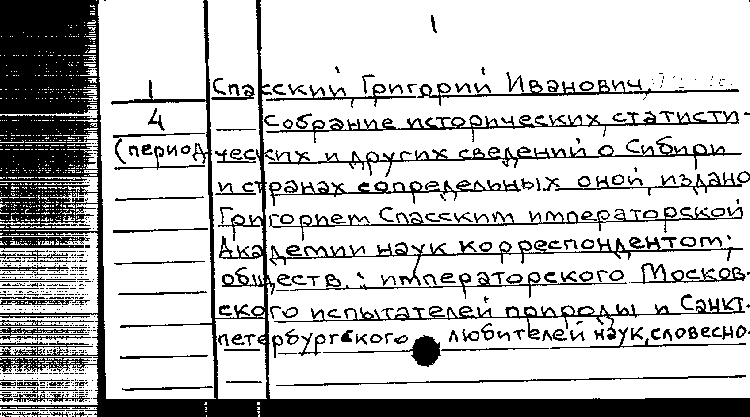 1
1 Спасский, Григорий Иванович,
4 Собрание исторических, статисти-
(период ческих и других сведений о Сибири
и странах сопредельных оной, издано
Григорием Спасским императорской
Академии наук корреспондентом;
обществ.: императорского Москов-
ского испытателей природы и Санкт-
петербургского любителей наук, словесно